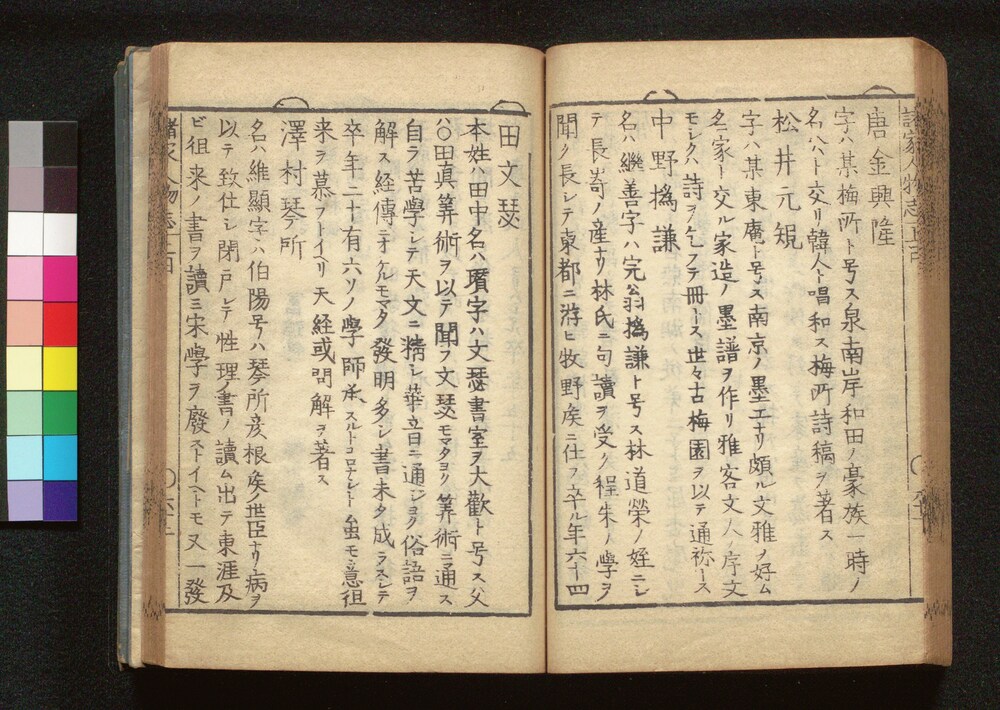 諸家人物志上
唐金興隆
字ハ某梅所ト号ス泉南岸和田ノ豪族一時ノ
名ハト交リ韓人ト唱和ス梅所詩稿ヲ著ス
松井元規
字ハ某東庵ト号ス南京ノ墨工ナリ頗ル文雅ヲ好ム
名家ト交ル家造ノ墨譜ヲ作リ雅客文人ノ序文
モシクハ詩ヲ乞フテ冊トス世々古梅園ヲ以テ通称トス
中野撝謙
名ハ繼善字ハ完翁撝謙ト号ス林道榮ノ姪ニシ
テ長崎ノ産ナリ林氏ニ句讀ヲ受ク程朱ノ學ヲ
聞ク長シテ東都ニ游ヒ牧野矦ニ仕フ卒ル年六十四
田文瑟
本姓ハ田中名ハ字ハ文瑟書室ヲ大歡ト号ス父
ハ田真筭術ヲ以テ聞フ文瑟モマタヨク筭術ニ通ス
自ラ苦學シテ天文ニ精シ華音ニ通シヨク俗語ヲ
解ス経傳ニオケルモマタ發明多シ書未タ成ラスシテ
卒年二十有六ソノ學師承スルトコロナシト虽モ意徂
来ヲ慕フトイヘリ天経或問解ヲ著ス
澤村琴所
名ハ維顯字ハ伯陽号ハ琴所彦根矦ノ世臣ナリ病ヲ
以テ致仕シ閉戸シテ性理ノ書ノ讀ム出テ東涯及
ビ徂来ノ書ヲ讀ミ宋學ヲ廢ストイヘトモ又一發
諸家人物志上